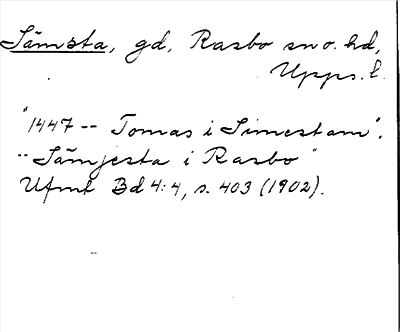 Sämsta, gd, Rasbo sn o. hd,
Upps. l.
"1447 -- Tomas i Simestam".
-- Sämjesta i Rasbo"
Ufmt Bd 4:4, s. 403 (1902).